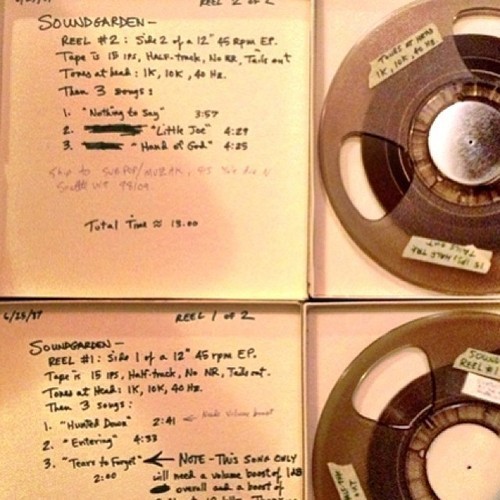 REEL 2 OF 2
SOUNDGARDEN—
REEL #2: Side 2 of a 12" 45 rpm EP.
Tape is 15 IPS, Half-track, No NR, Tails out
Tones at head: 1K, 10K, 40 Hz.
Then 3 songs:
1. "Nothing to Say" 3:57
2. "Little Joe" 4:29
3. "Hand of God" 4:25
Ship to SUB POP/MUZAK,
Seattle WA
Total Time ≈ 13:00
TONES AT HEAD
1K, 10K, 40 Hz
15 IPS HALF TRK
TAILS OUT
6/25/87 REEL 1 OF 2
SOUNDGARDEN—
REEL #1: Side 1 of a 12" 45 rpm EP.
Tape is 15 IPS, Half-track, No NR, Tails out.
Tones at Head: 1K, 10K, 40 Hz.
Then 3 songs:
1. "Hunted Down" 2:41 ← Needs Volume boost
2. "Entering" 4:33
3. "Tears to Forget" ← NOTE - THIS SONG ONLY
2:00 will need a volume boost of 1dB
overall and a boost of
SOUNDGARDEN
REEL #1